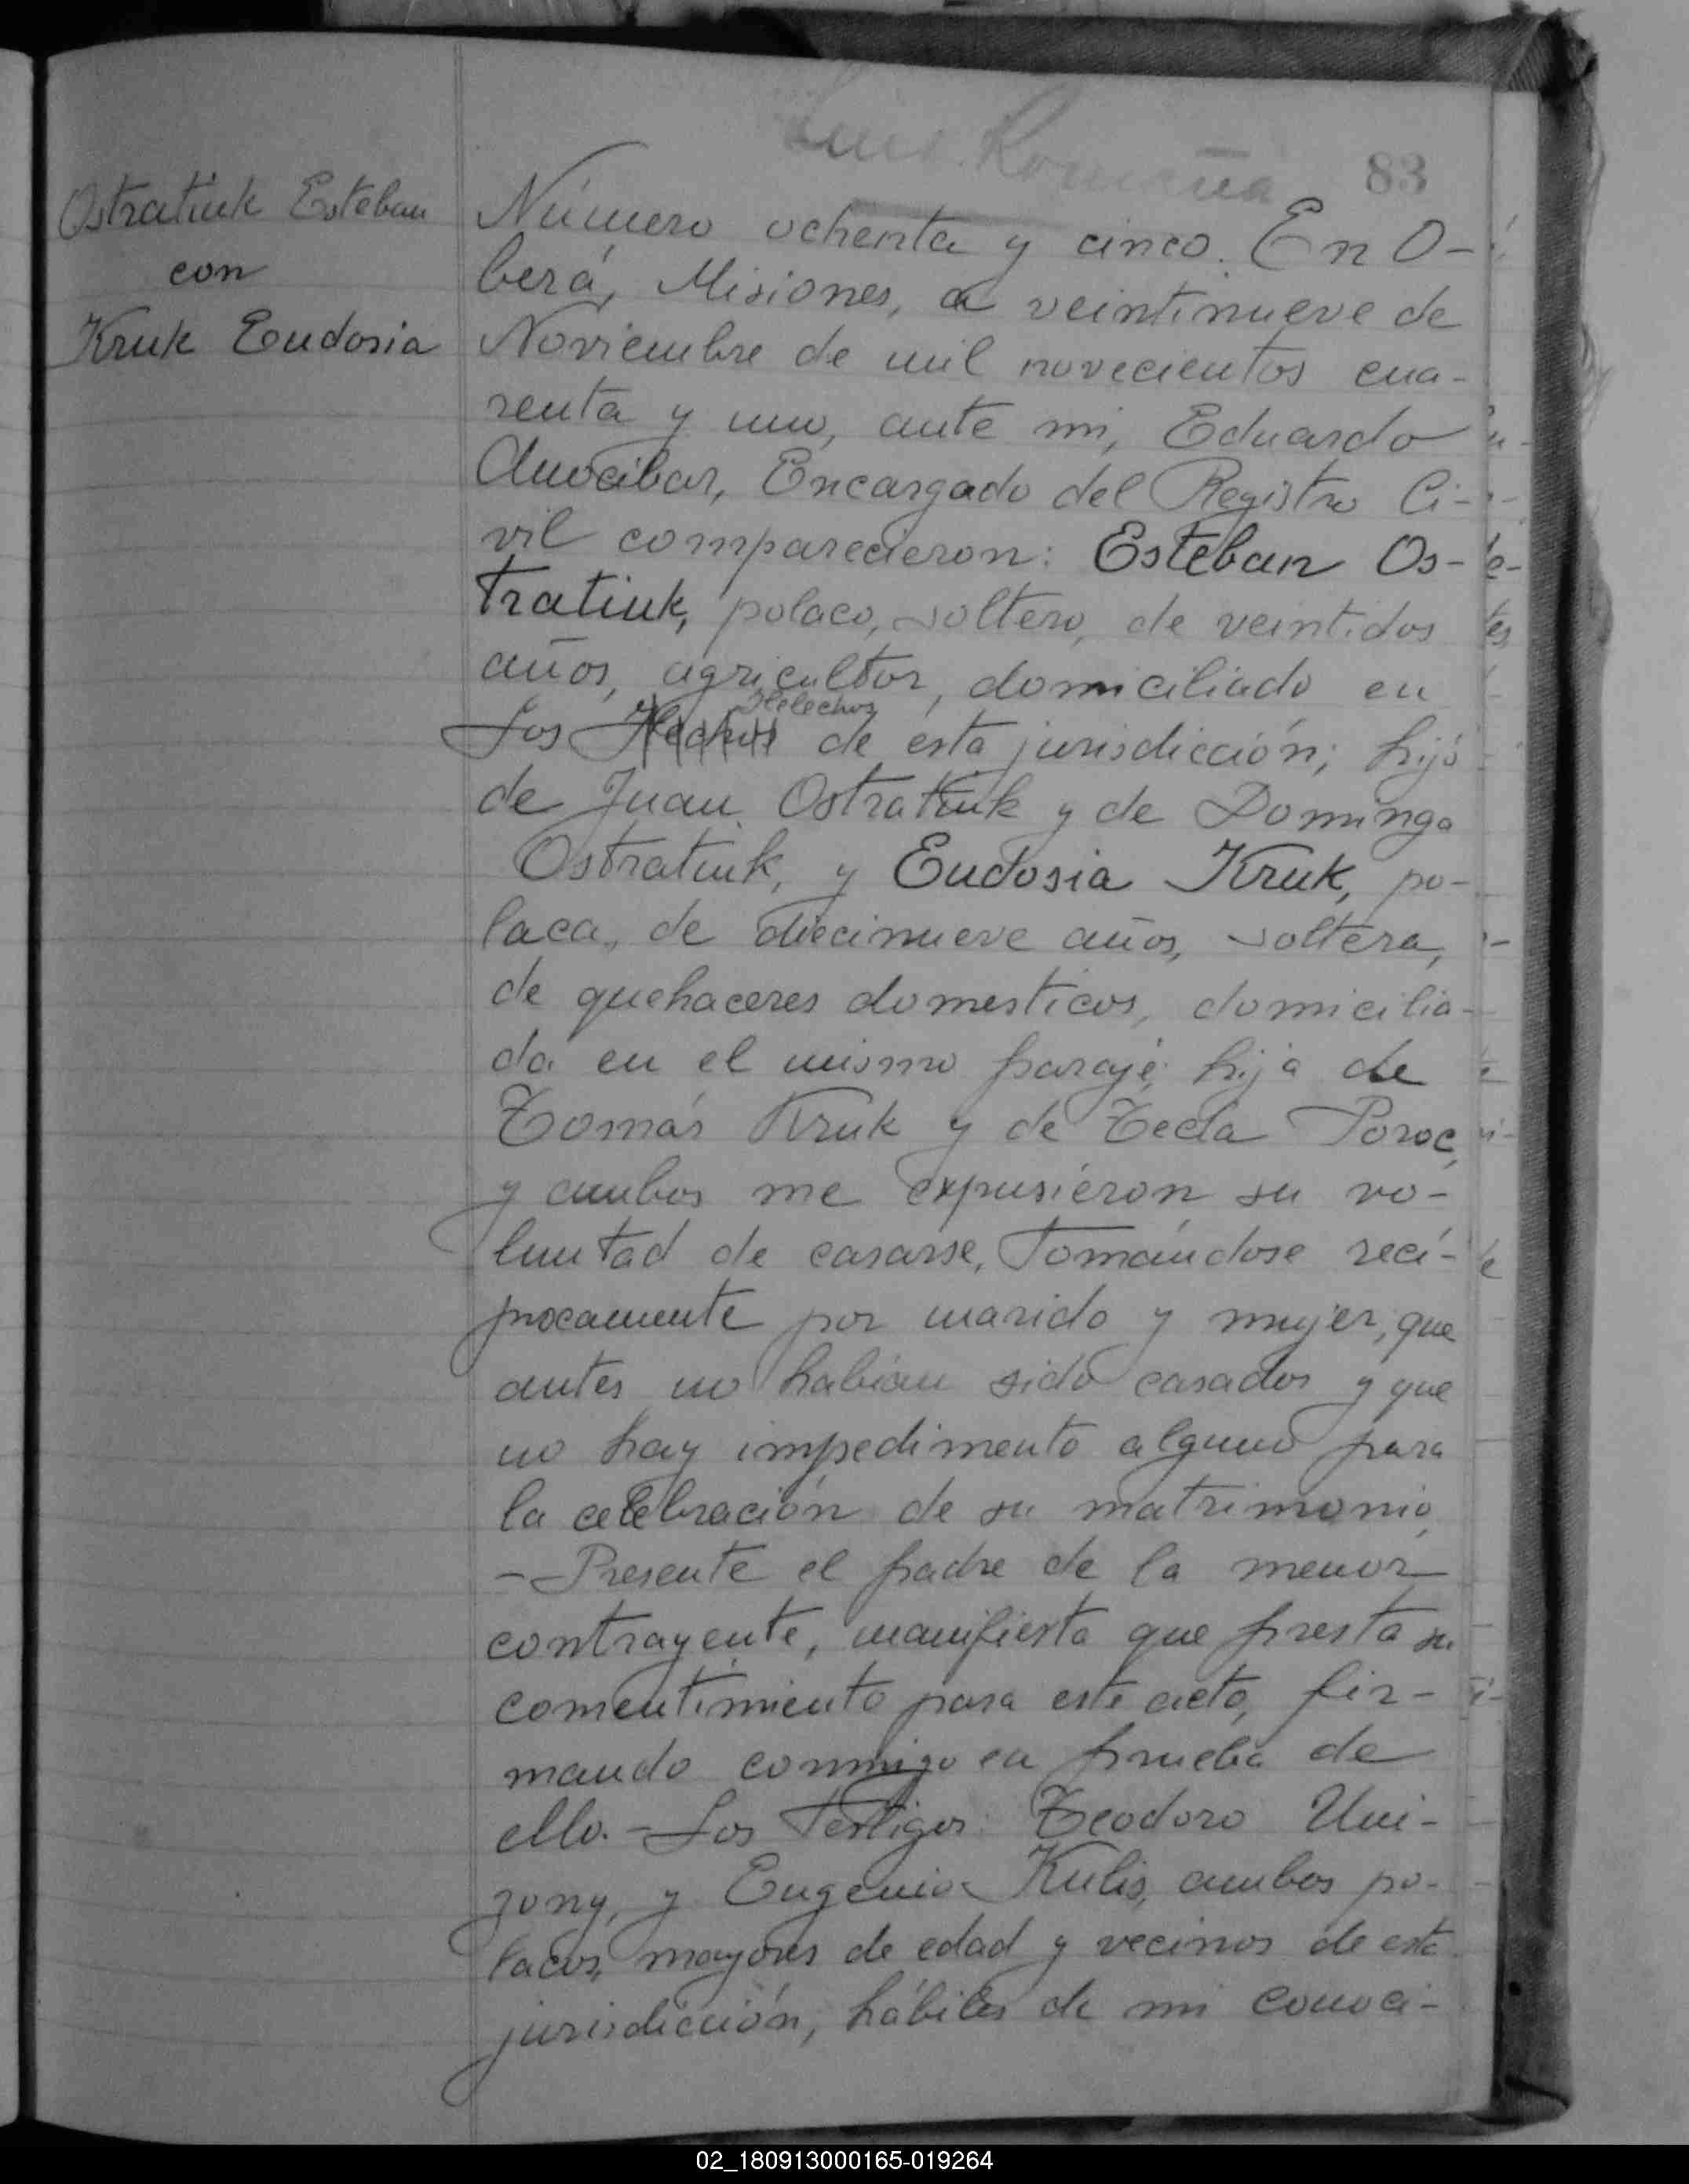 83
Ostratiuk Esteban
con
Kruk Eudosia
Número ochenta y cinco. En O-
berá, Misiones, a veintinueve de
Noviembre de mil novecientos cua-
renta y uno, ante mi, Eduardo
Anocibar, Encargado del Registro Ci-
vil comparecieron: Esteban Os-
tratiuk, polaco, soltero, de veintidos
años, agricultor, domiciliado en
Helechos
Los de esta jurisdicción; hijo
de Juan Ostratiuk y de Dominga
Ostratiuk, y Eudosia Kruk, po-
laca, de diecinueve años, soltera,
de quehaceres domesticos, domicilia-
da en el mismo paraje; hija de
Tomás Kruk y de Tecla Poroc,
y ambos me expusieron su vo-
luntad de casarse, tomándose recí-
procamente por marido y mujer, que
antes no habian sido casados y que
no hay impedimento alguno para
la celebración de su matrimonio.
- Presente el padre de la menor
contrayente, manifiesta que presta su
consentimiento para este acto, fir-
mando conmigo en prueba de
ello. - Los testigos: Teodoro Uni-
zony, y Eugenio Kulis, ambos po-
lacos, mayores de edad y vecinos de esta
jurisdicción, hábiles de mi conoci-
02_180913000165-019264